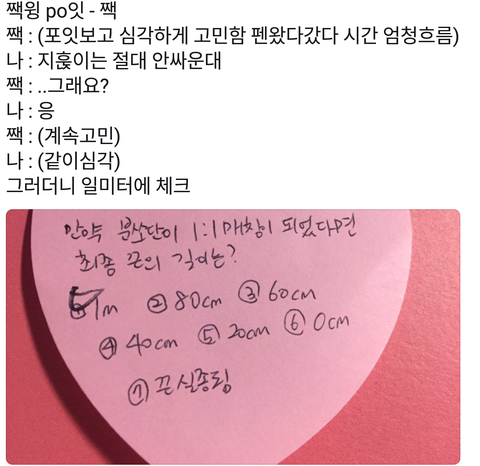 짹윙 po잇 - 짹
짹 : (포잇보고 심각하게 고민함 펜왔다갔다 시간 엄청흐름)
나 : 지훊이는 절대 안싸운대
짹 : ..그래요?
나 : 응
짹 : (계속고민)
나 : (같이심각)
그러더니 일미터에 체크
만약 분쏘단이 1:1 매칭이 되었다면
최종 끈의 길이는?
①1m ②80cm ③60cm
④40cm ⑤20cm ⑥0cm
⑦끈실종됨